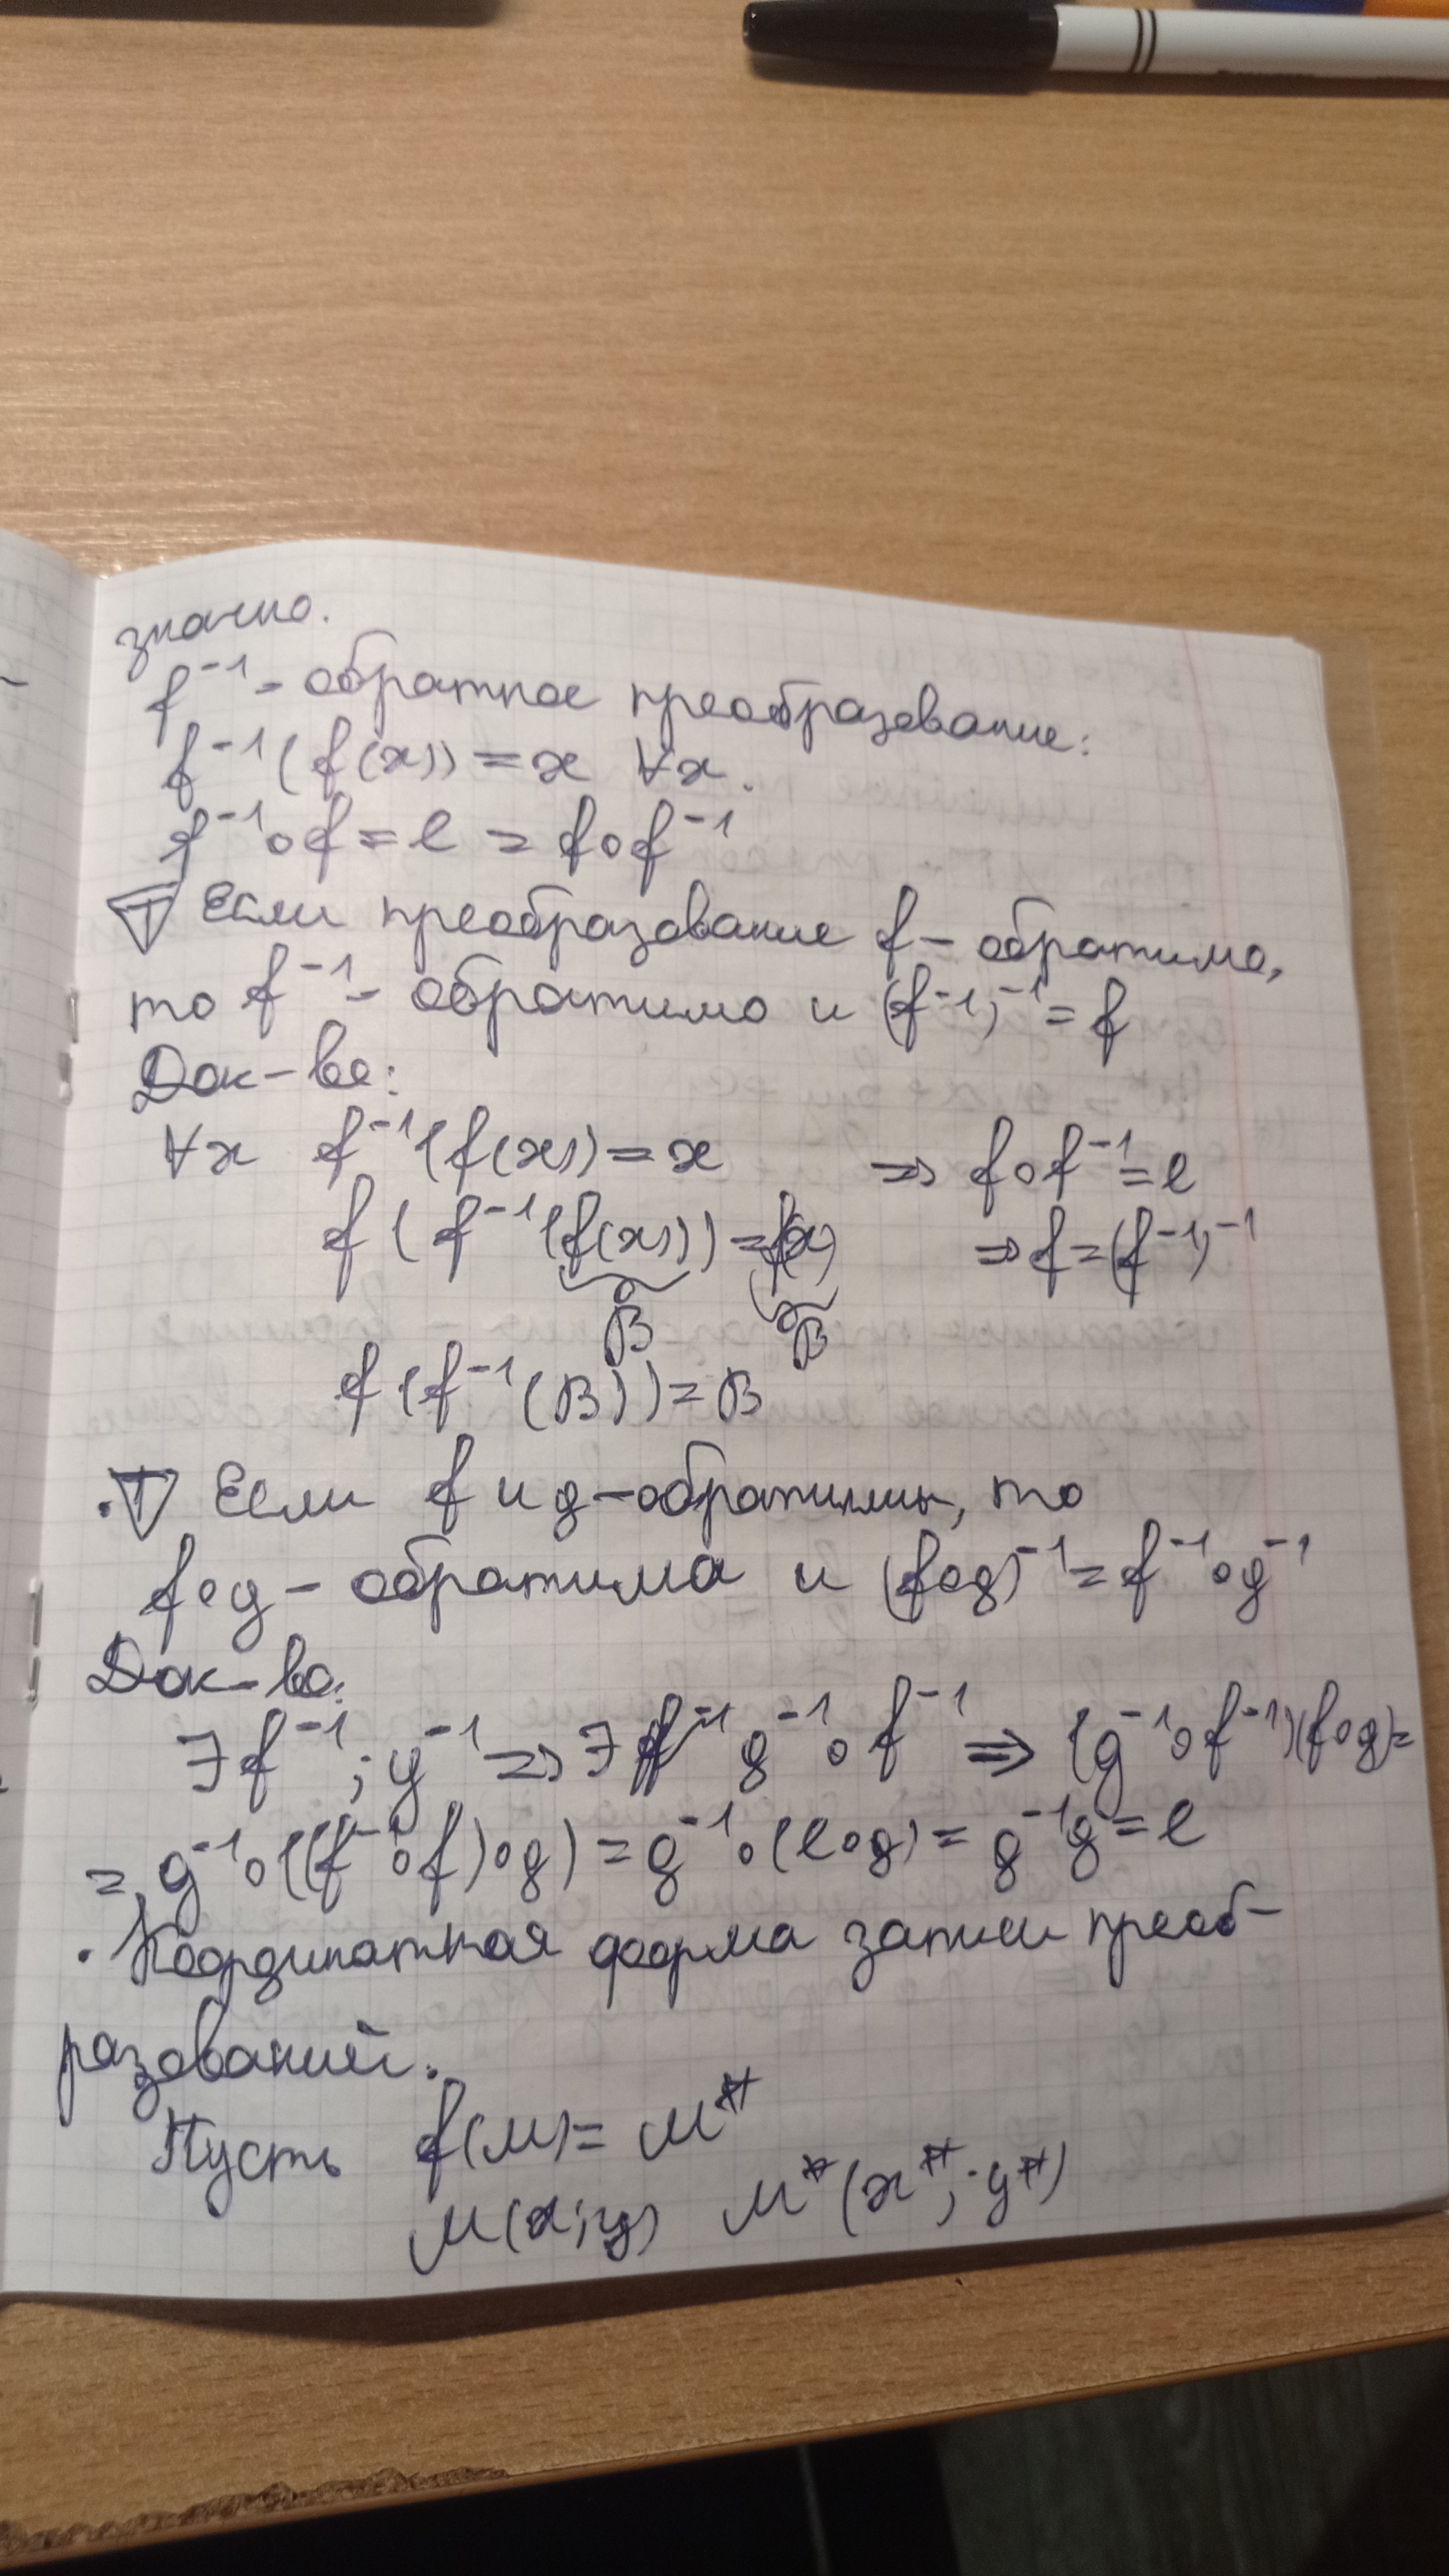 значно.
f⁻¹ - обратное преобразование:
f⁻¹(f(x)) = x ∀x.
f⁻¹∘f = e = f∘f⁻¹
T Если преобразование f - обратимо,
то f⁻¹ - обратимо и (f⁻¹)⁻¹ = f
Док-во:
∀x f⁻¹(f(x)) = x ⇒ f∘f⁻¹ = e
f(f⁻¹(f(x))) = f(x) ⇒ f = (f⁻¹)⁻¹
B B
f(f⁻¹(B)) = B
· T Если f и g - обратимы, то
f∘g - обратима и (f∘g)⁻¹ = f⁻¹∘g⁻¹
Док-во:
∃ f⁻¹; g⁻¹ ⇒ ∃ g⁻¹∘f⁻¹ ⇒ (g⁻¹∘f⁻¹)(f∘g) =
= g⁻¹∘((f⁻¹∘f)∘g) = g⁻¹∘(e∘g) = g⁻¹g = e
· Координатная форма записи преоб-
разований.
Пусть f(M) = M*
M(x; y) M*(x*; y*)